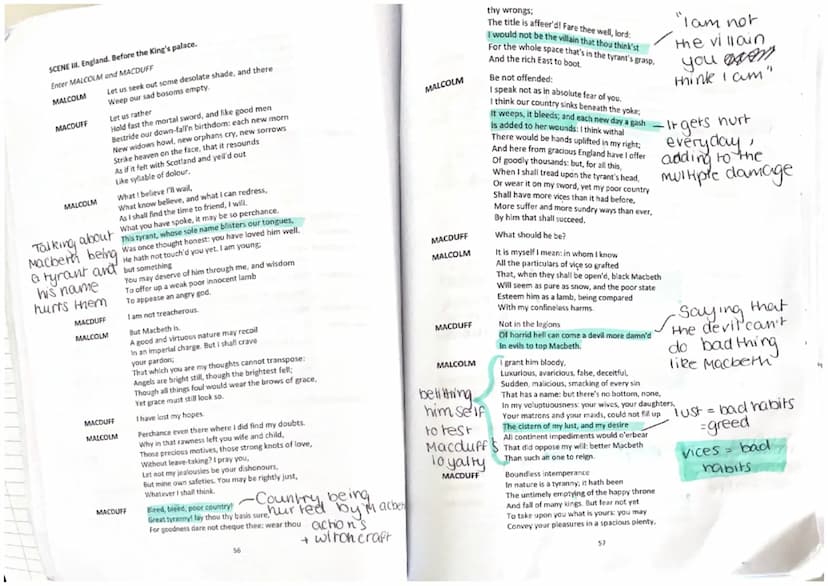 SCENE III. England. Before the King's palace.
Enter MALCOLM and MACDUFF
MALCOLM Let us seek out some desolate shade, and there
Weep our sad bosoms empty.
MACDUFF Let us rather
Hold fast the mortal sword, and like good men
Bestride our down-fall'n birthdom: each new morn
New widows howl, new orphans cry, new sorrows
Strike heaven on the face, that it resounds
As if it felt with Scotland and yell'd out
Like syllable of dolour.
MALCOLM What I believe I'll wail,
What know believe, and what I can redress,
As I shall find the time to friend, I will.
What you have spoke, it may be so perchance.
This tyrant, whose sole name blisters our tongues,
Was once thought honest: you have loved him well.
He hath not touch'd you yet. I am young;
but something
You may deserve of him through me, and wisdom
To offer up a weak poor innocent lamb
To appease an angry god.
Talking about
Macbeth being
a tyrant and
his name
hurts them
MACDUFF I am not treacherous.
MALCOLM But Macbeth is.
A good and virtuous nature may recoil
In an imperial charge. But I shall crave
your pardon;
That which you are my thoughts cannot transpose:
Angels are bright still, though the brightest fell;
Though all things foul would wear the brows of grace,
Yet grace must still look so.
MACDUFF I have lost my hopes.
MALCOLM Perchance even there where I did find my doubts.
Why in that rawness left you wife and child,
Those precious motives, those strong knots of love,
Without leave-taking? I pray you,
Let not my jealousies be your dishonours,
But mine own safeties. You may be rightly just,
Whatever I shall think.
MACDUFF Bleed, bleed, poor country!
Great tyranny! lay thou thy basis sure,
For goodness dare not cheque thee: wear thou
Country being
hurt ed by Macbe
action's
+ witchcraft
56
thy wrongs;
The title is affeer'd! Fare thee well, lord:
I would not be the villain that thou think'st
For the whole space that's in the tyrant's grasp,
And the rich East to boot.
"I am not
the villain
you
think I am"
MALCOLM Be not offended:
I speak not as in absolute fear of you.
I think our country sinks beneath the yoke;
It weeps, it bleeds; and each new day a gash
Is added to her wounds: I think withal
There would be hands uplifted in my right;
And here from gracious England have I offer
Of goodly thousands: but, for all this,
When I shall tread upon the tyrant's head,
Or wear it on my sword, yet my poor country
Shall have more vices than it had before,
More suffer and more sundry ways than ever,
By him that shall succeed.
It gets hurt
everyday,
adding to the
multiple damage
MACDUFF What should he be?
MALCOLM It is myself I mean: in whom I know
All the particulars of vice so grafted
That, when they shall be open'd, black Macbeth
Will seem as pure as snow, and the poor state
Esteem him as a lamb, being compared
With my confineless harms.
MACDUFF Not in the legions
Of horrid hell can come a devil more damn'd
In evils to top Macbeth.
Saying that
the devil can't
do bad thing
like Macbeth
MALCOLM I grant him bloody,
Luxurious, avaricious, false, deceitful,
Sudden, malicious, smacking of every sin
That has a name: but there's no bottom, none,
In my voluptuousness: your wives, your daughters,
Your matrons and your maids, could not fill up
The cistern of my lust, and my desire
All continent impediments would o'erbear
That did oppose my will: better Macbeth
Than such an one to reign.
belittling
himself
to test
Macduff's
loyalty
lust = bad habits
=greed
vices = bad
habits
MACDUFF Boundless intemperance
In nature is a tyranny; it hath been
The untimely emptying of the happy throne
And fall of many kings. But fear not yet
To take upon you what is yours: you may
Convey your pleasures in a spacious plenty,
57